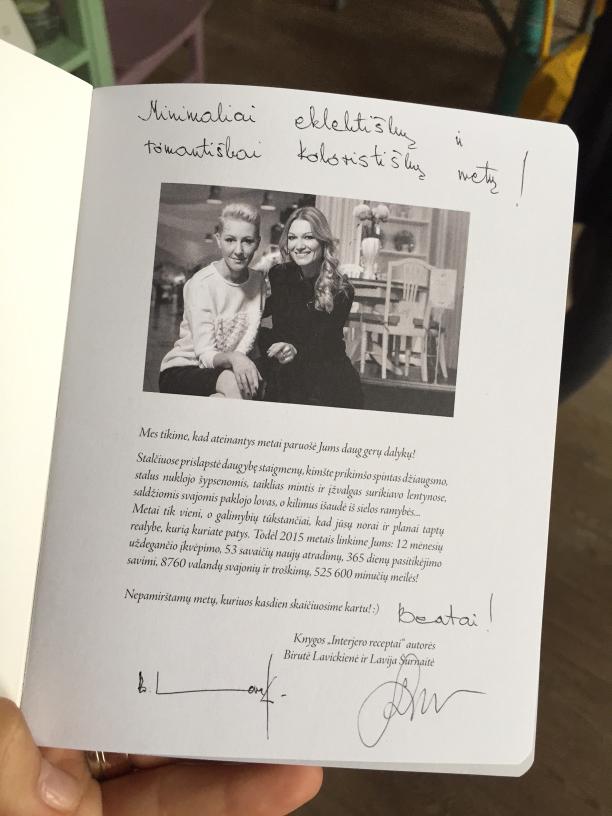 Minimaliai eklektiškų ir
romantiškai koloristiškų metų!
Mes tikime, kad ateinantys metai paruošė Jums daug gerų dalykų!
Stalčiuose prislapstė daugybę staigmenų, kimšte prikimšo spintas džiaugsmo,
stalus nuklojo šypsenomis, taiklias mintis ir įžvalgas surikiavo lentynose,
saldžiomis svajomis paklojo lovas, o kilimus išaudė iš sielos ramybės...
Metai tik vieni, o galimybių tūkstančiai, kad jūsų norai ir planai taptų
realybe, kurią kuriate patys. Todėl 2015 metais linkime Jums: 12 mėnesių
uždegančio įkvėpimo, 53 savaičių naujų atradimų, 365 dienų pasitikėjimo
savimi, 8760 valandų svajonių ir troškimų, 525 600 minučių meilės!
Nepamirštamų metų, kuriuos kasdien skaičiuosime kartu! :)
Beatai!
Knygos „Interjero receptai" autorės
Birutė Lavickienė ir Lavija Šurnaitė